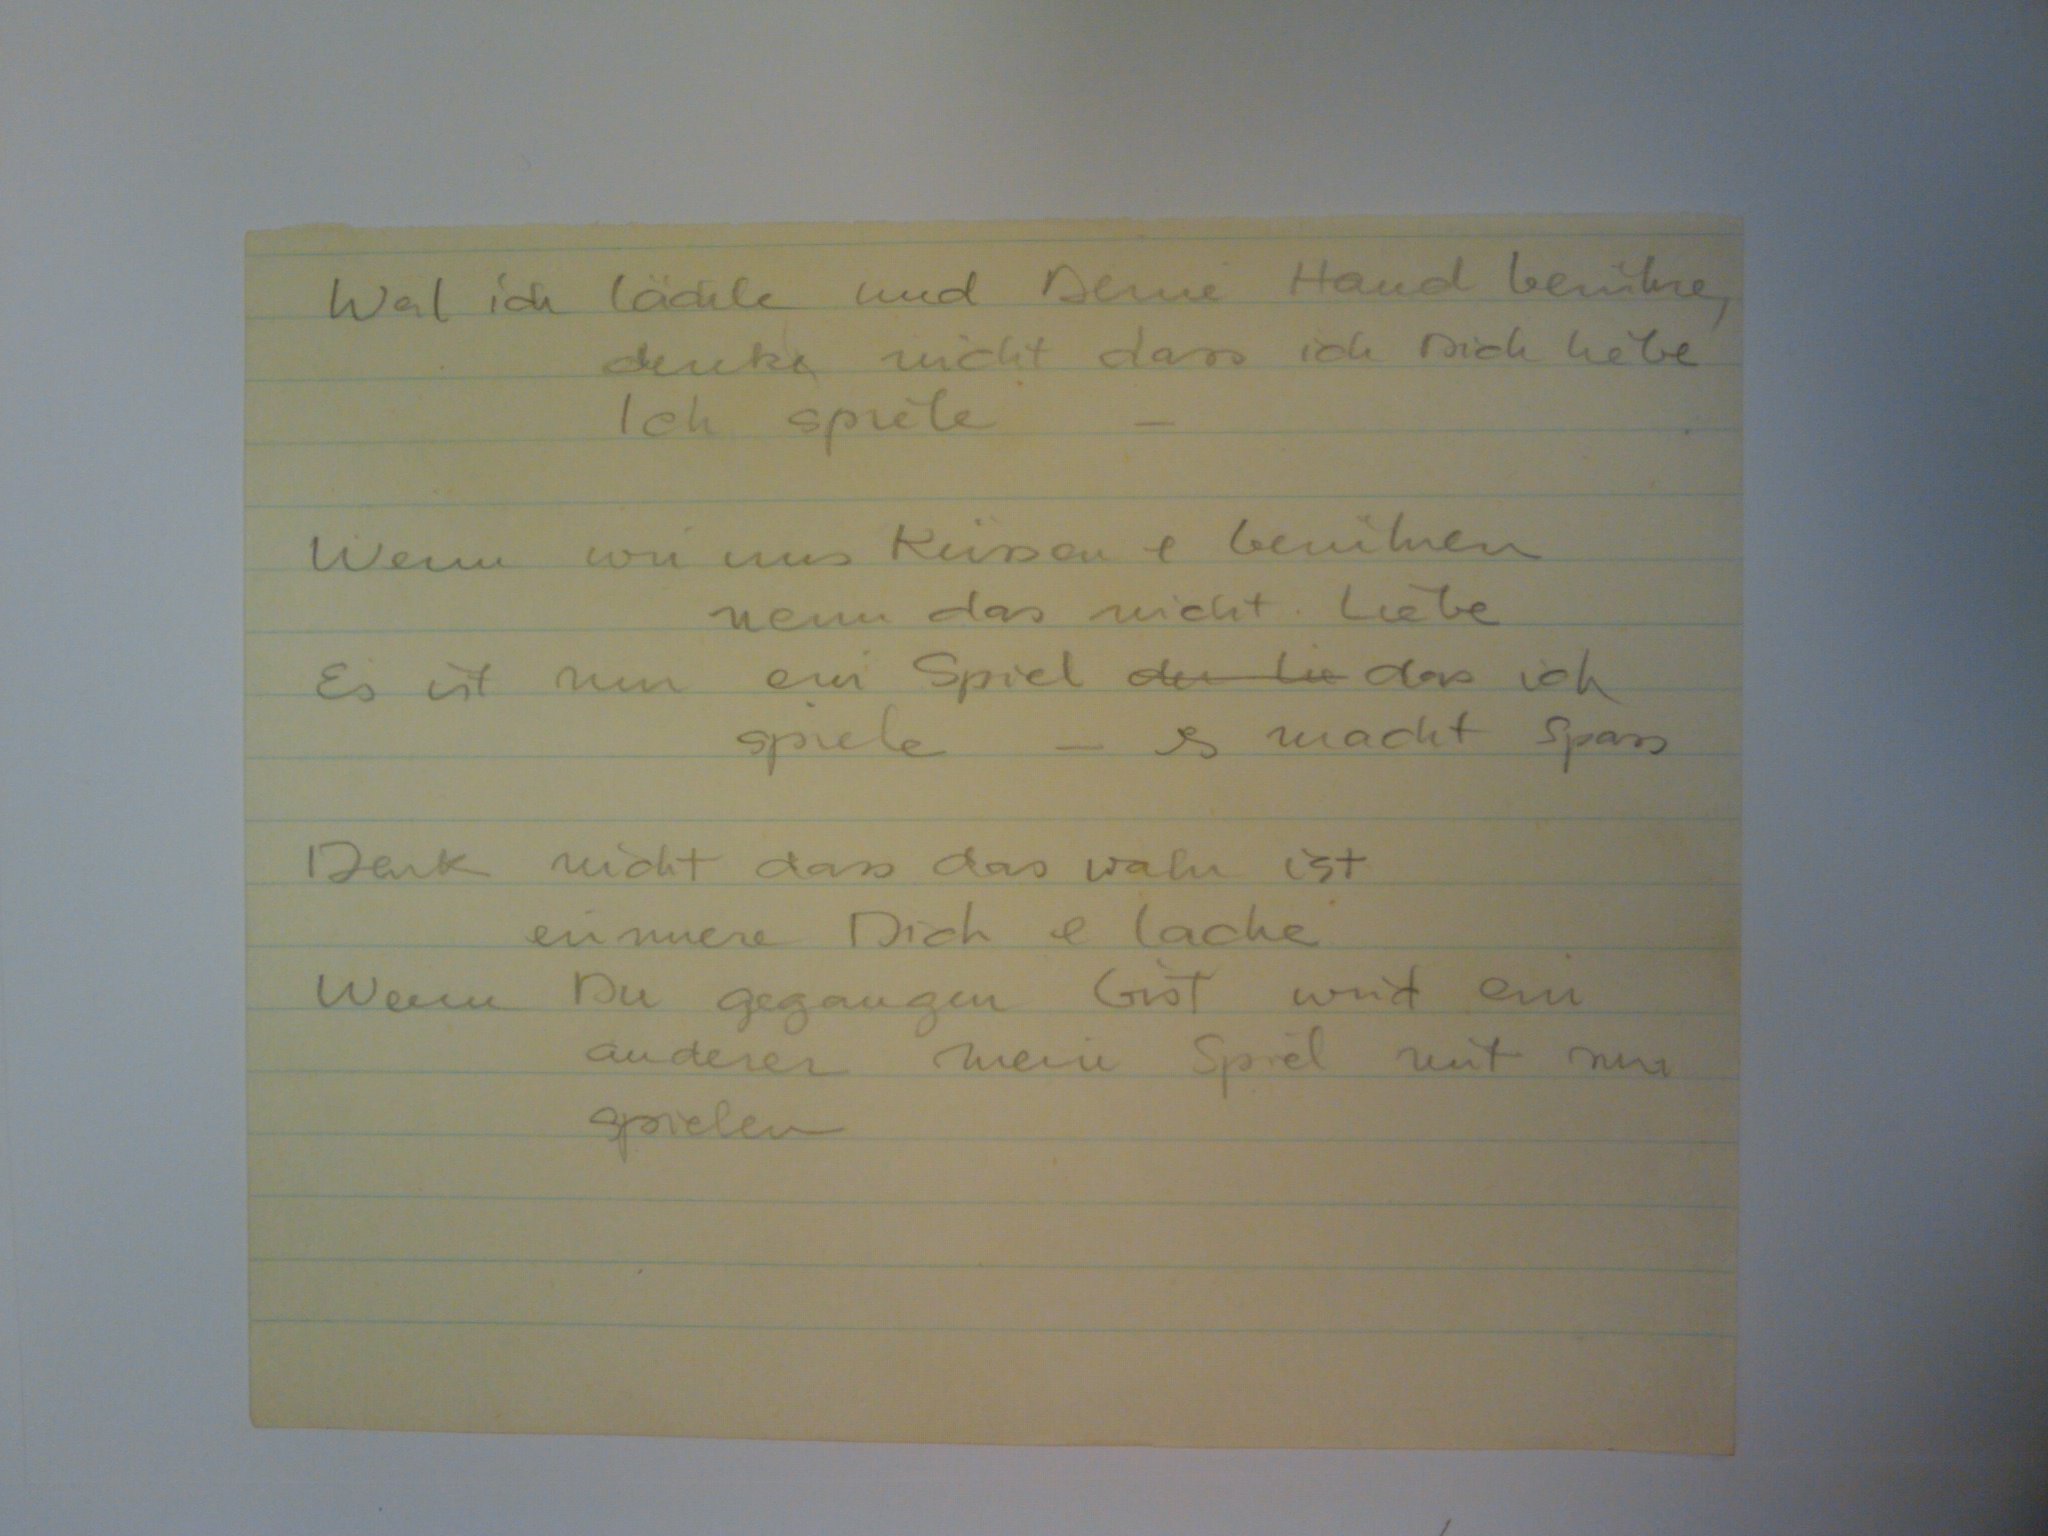 Weil ich lächle und Deine Hand berühre,
denke nicht dass ich Dich liebe
Ich spiele —
Wenn wir uns küssen & berühren
nenn das nicht Liebe
Es ist nur ein Spiel der Lie das ich
spiele — es macht Spass
Denk nicht dass das wahr ist
erinnere Dich & lache
Wenn Du gegangen bist wird ein
anderer mein Spiel mit mir
spielen